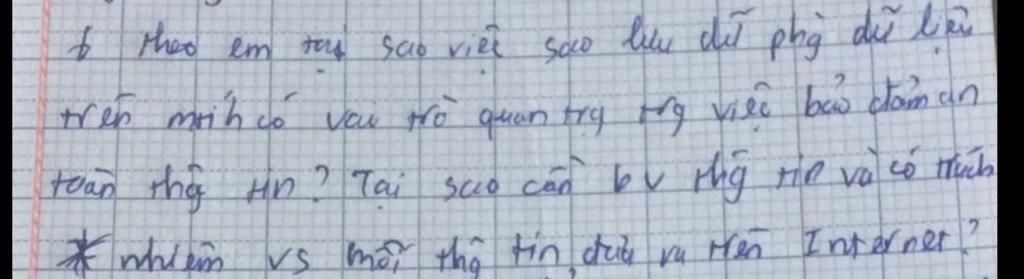 b theo em tại sao việc sao lưu dữ phg dữ liệu
trên mtíh có vai trò quan trg trg việc bảo đảm an
toàn thg tin? Tại sao cần bv thg tin và có trách
nhiệm vs mỗi thg tin đưa ra trên Internet?